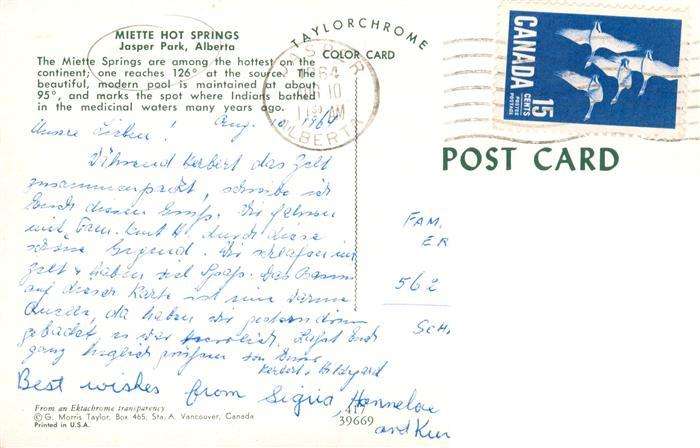 MIETTE HOT SPRINGS
Jasper Park, Alberta
The Miette Springs are among the hottest on the
continent; one reaches 126° at the source. The
beautiful, modern pool is maintained at about
95°, and marks the spot where Indians bathed
in the medicinal waters many years ago.
TAYLORCHROME
COLOR CARD
JASPER
1964
10
AM
ALBERTA
CANADA
15
CENTS
POSTES
POSTAGE
POST CARD
Unsre Lieben! Aug. 10. 1964
Während Herbert das Zelt
zusammenpackt, schreibe ich
Euch diesen Gruß. Wir fahren
mit Fam. Kurt H. durch diese
schöne Gegend. Wir schlafen im
Zelt & haben viel Spaß. Das
auf dieser Karte ist eine warme
Quelle, da haben wir gestern drin
gebadet, es war herrlich. Seid Euch
ganz herzlich gegrüßt von Euren
Herbert & Hildegard
Best wishes from Sigrid, Hannelore
and Kurt
FAM.
ER
562
SCH.
From an Ektachrome transparency
© G. Morris Taylor, Box 465, Sta. A. Vancouver, Canada
Printed in U.S.A.
417
39669